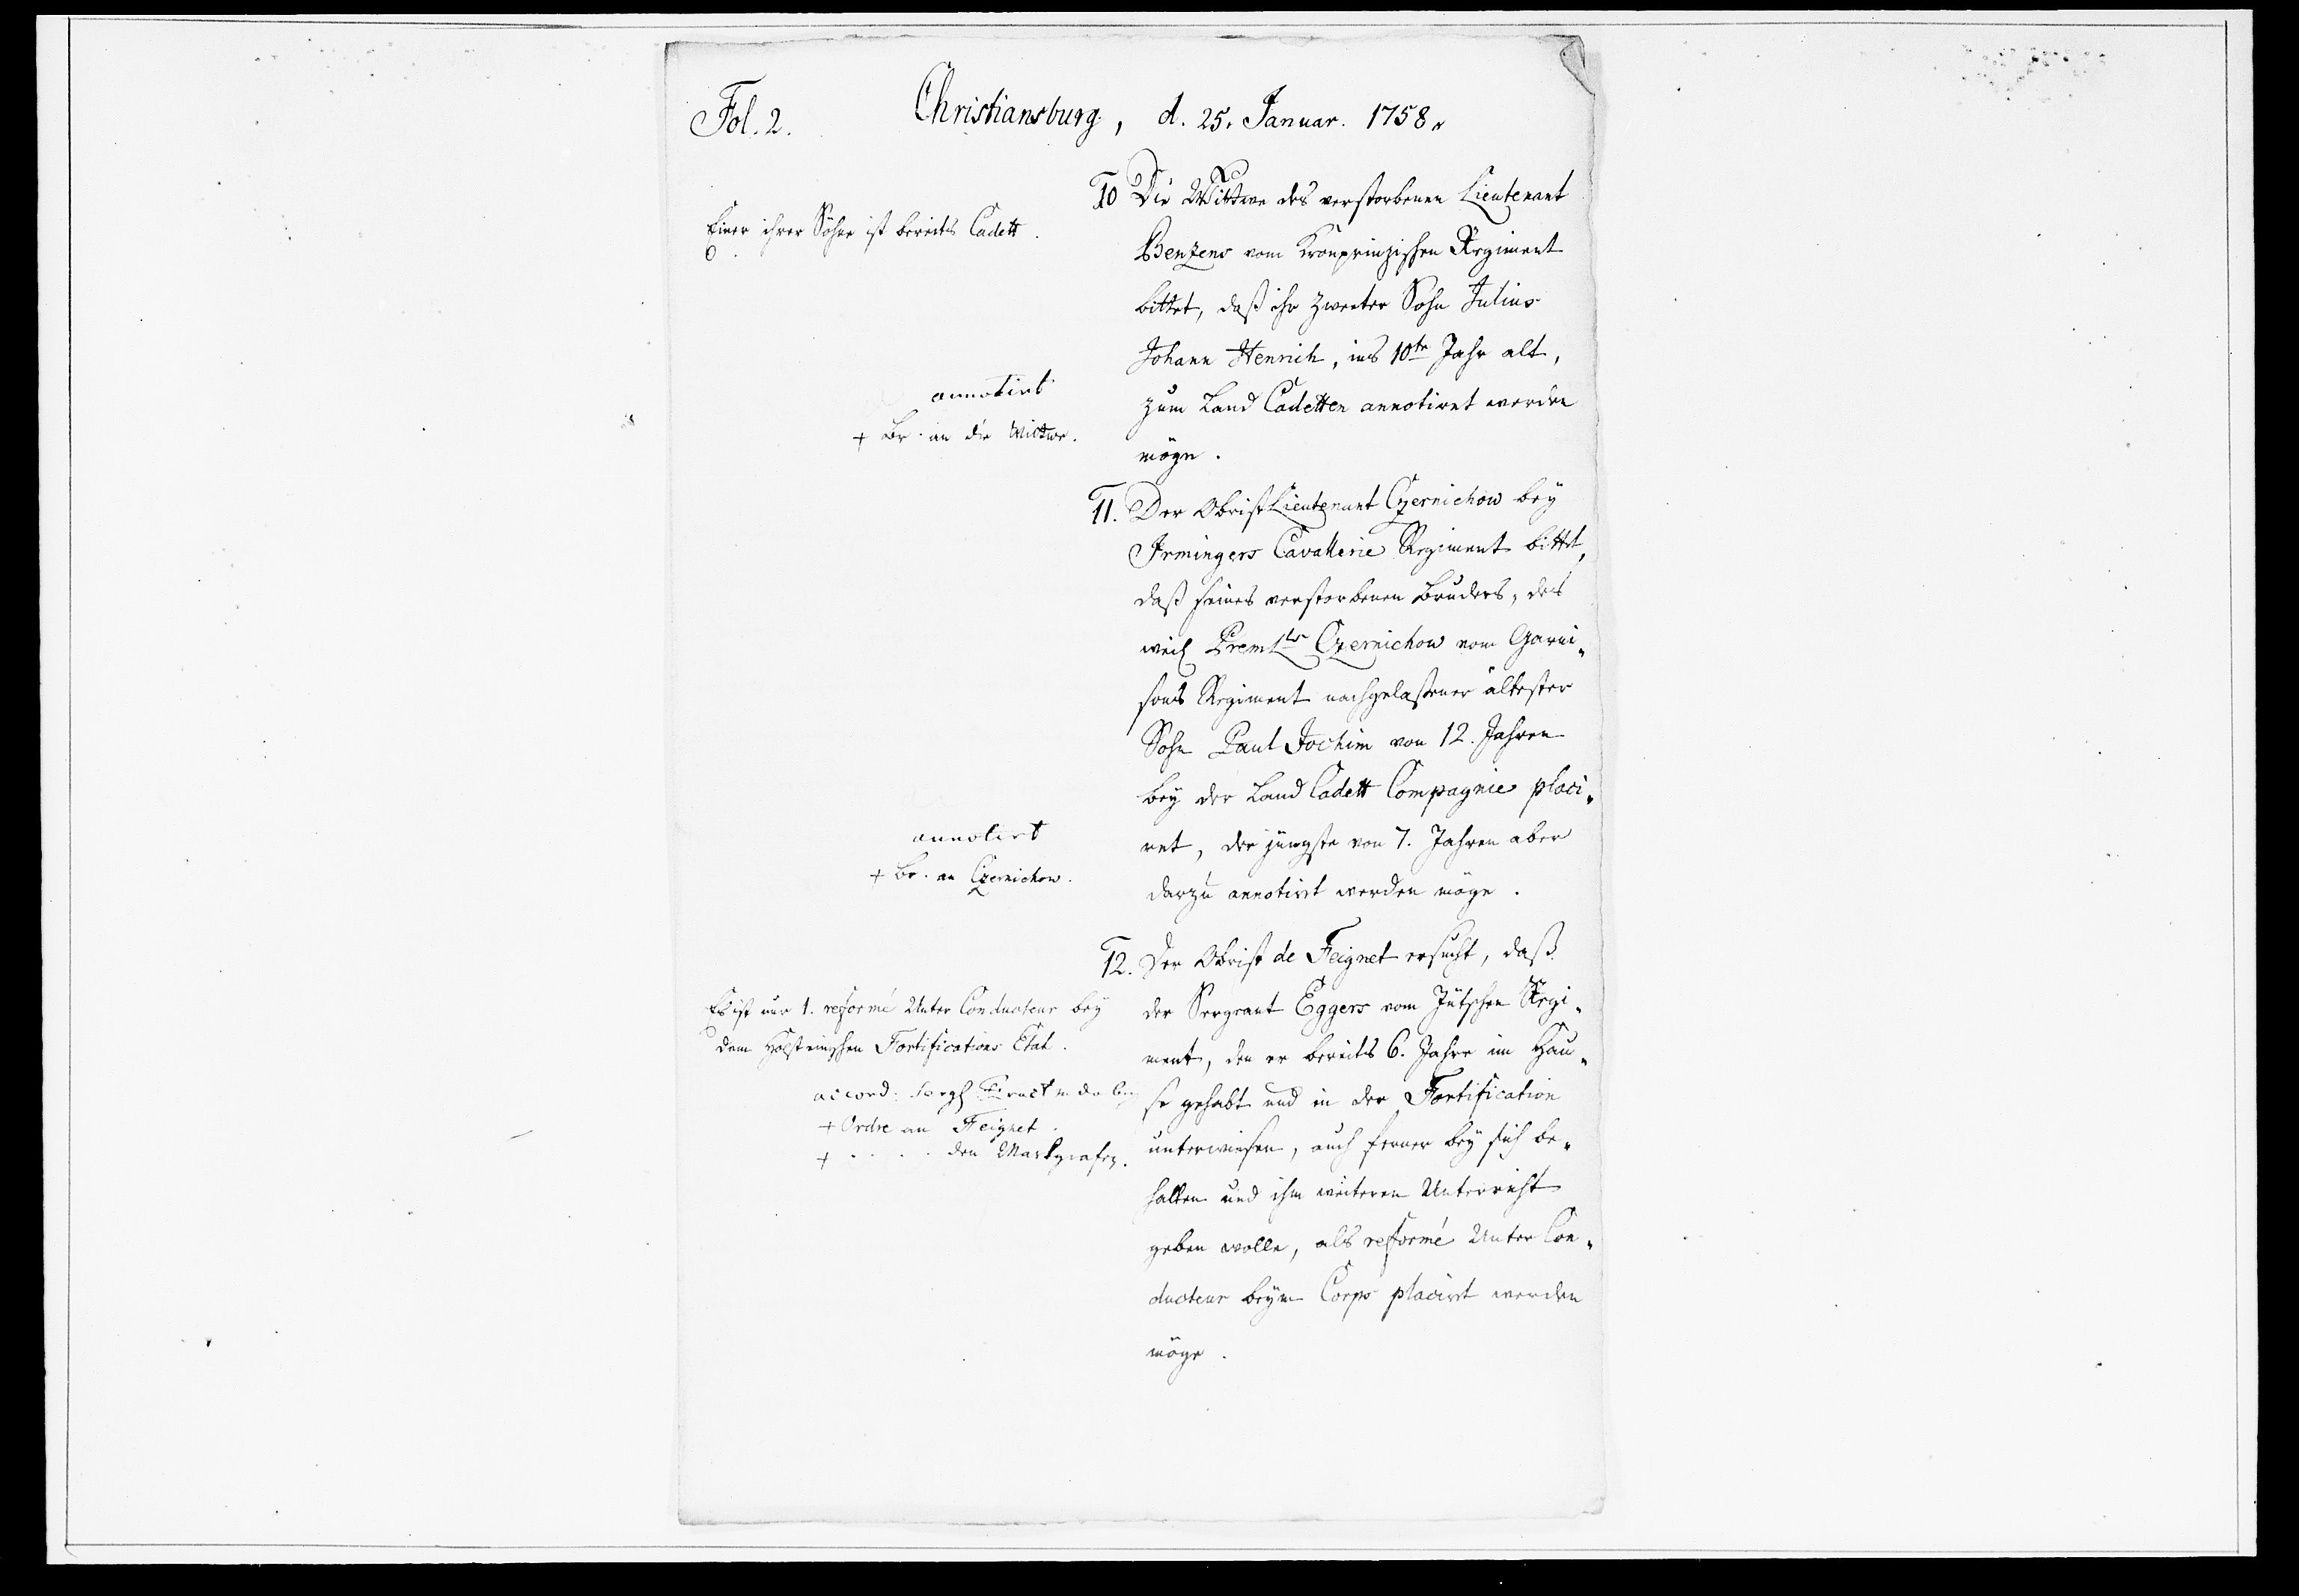 Fol. 2.
Christiansburg, d. 25. Januar. 1758.
10 Die Wittwe des verstorbenen Lieutenant
Benzens vom Kronprinzischen Regiment
bittet, daß ihr zweeter Sohn Julius
Johann Henrich, ins 10te Jahr alt,
zum Land Cadetten annotiret werden
möge.
Einer ihrer Söhne ist bereits Cadett.
annotirt
+ Br. an die Wittwe.
11. Der ObristLieutenant Czernichow bey
Irmingers Cavallerie Regiment bittet,
daß seines verstorbenen Bruders, des
weil PremLts Czernichow vom Garni-
sons Regiment nachgelaßener ältester
Sohn Paul Jochim von 12. Jahren
bey der Land Cadett Compagnie placi-
ret, der jüngste von 7. Jahren aber
darzu annotirt werden möge.
annotirt
+ Br. an Czernichow.
12. Der Obrist de Feignet ersucht, daß
der Sergeant Eggers vom Jütschen Regi-
ment, den er bereits 6. Jahre im Hau-
se gehabt und in der Fortification
unterwiesen, auch ferner bey sich be-
halten und ihm weiteren Unterricht
geben wolle, als reformé Unter Con-
ducteur beym Corps placirt werden
möge.
Es ist nur 1. reformé Unter Conducteur bey
dem Holsteinschen Fortifications Etat.
accord:
+ Ordre an Feignet.
+ . . . . den Markgrafen.